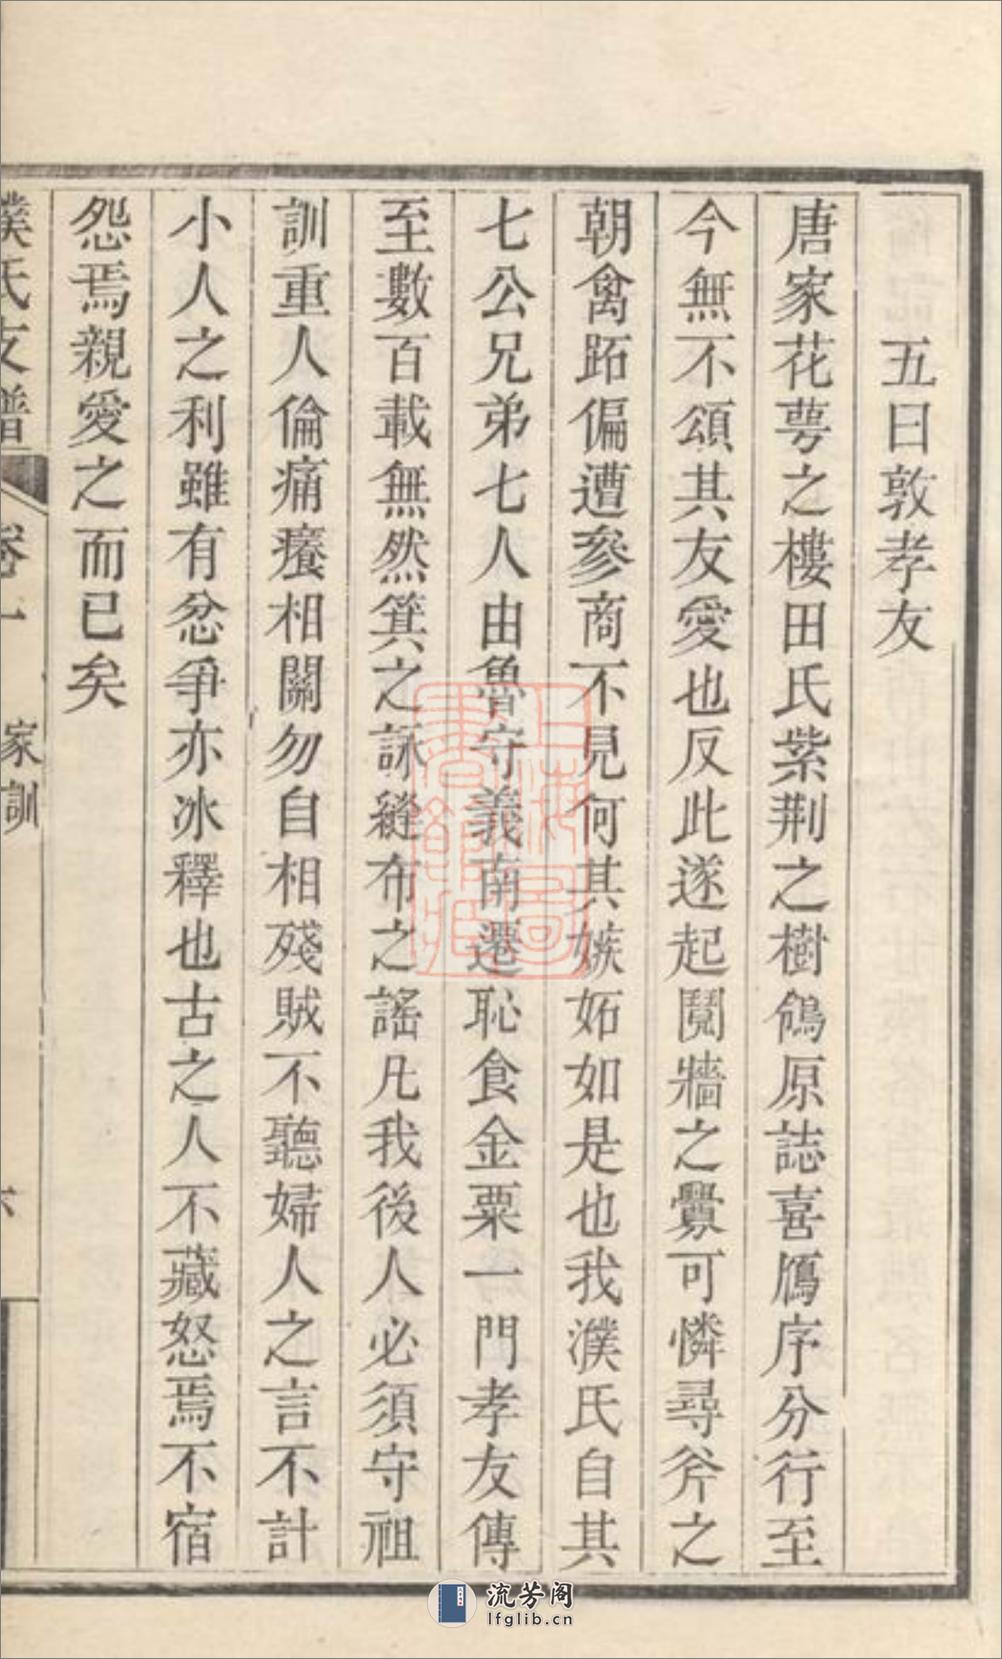 五曰敦孝友
唐家花萼之樓田氏紫荆之樹鴒原誌喜鴈序分行至
今無不頌其友愛也反此遂起鬩牆之釁可憐尋斧之
朝禽跖偏遭參商不見何其嫉妬如是也我濮氏自其
七公兄弟七人由魯守義南遷恥食金粟一門孝友傳
至數百載無然箕之詠縫布之謠凡我後人必須守祖
訓重人倫痛癢相關勿自相殘賊不聽婦人之言不計
小人之利雖有忿爭亦冰釋也古之人不藏怒焉不宿
怨焉親愛之而已矣
濮氏支譜 卷一 家訓 六
上海圖書館藏
流芳阁
lfglib.cn